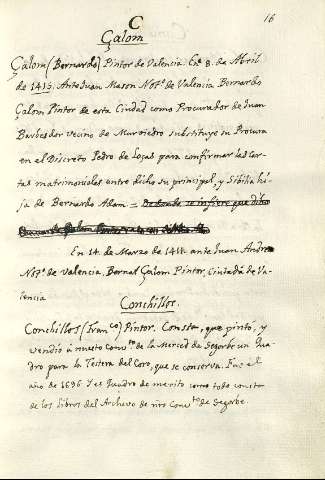 16
C
Çalom
Çalom (Bernardo) Pintor de Valencia. En 8. de Abril
de 1415. Ante Juan Mason Notº. de Valencia Bernardo
Çalom Pintor de esta Ciudad como Procurador de Juan
Barbesder vecino de Murviedro substituye su Procura
en el Discreto Pedro de Loças para confirmar las Car-
tas matrimoniales entre dicho su principal, y Sibilia hi-
ja de Bernardo Alam = De donde se infiere que dicho
Bernardo Çalom
En 14. de Marzo de 1411. ante Juan Andreu
Notº. de Valencia. Bernat Çalom Pintor, Ciutadá de Va-
lencia
Conchillos.
Conchillos (Franco) Pintor. Consta, que pintó, y
vendió á nuestro Convto de la Merced de Segorbe un Qua-
dro para la Testera del Coro, que se conserva. Fue el
año de 1696 y es Quadro de merito como todo consta
de los libros del Archivo de nro Convto de Segorbe.